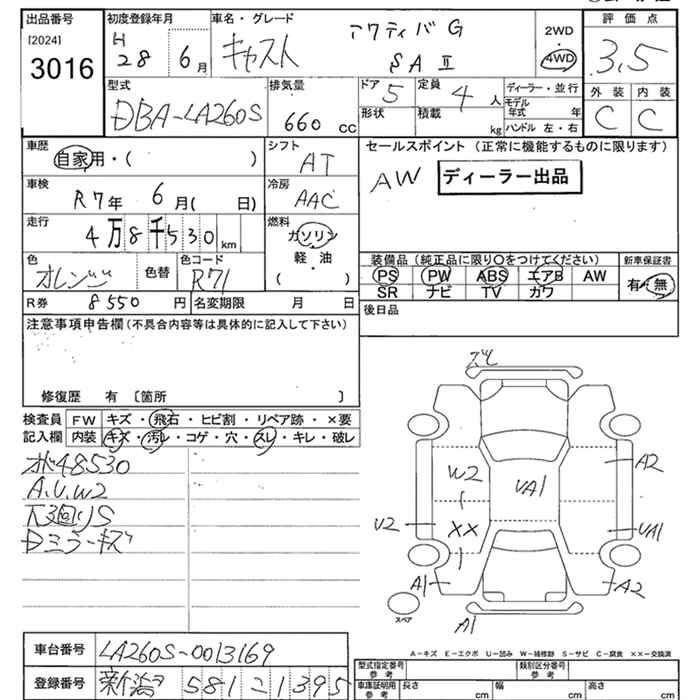 出品番号
[2024]
3016
初度登録年月
H
28 6月
車名・グレード
キャスト アクティバG
SAⅡ
2WD
・
4WD
評価点
3.5
外装 内装
C C
型式
DBA-LA260S
排気量
660 cc
ドア 5
形状
定員 4人
積載 kg
ディーラー・並行
モデル年式 年
ハンドル 左・右
車歴
自家用・( )
シフト
AT
車検
R7年 6月( 日)
冷房
AAC
走行
4万8千530km
燃料
ガソリン
軽・油
( )
色
オレンジ
色替
色コード
R71
R券 8550円
名変期限 月 日
セールスポイント (正常に機能するものに限ります)
AW ディーラー出品
装備品 (純正品に限り〇をつけてください)
新車保証書
PS PW ABS エアB AW
有・無
SR ナビ TV カワ
後日品
注意事項申告欄 (不具合内容等は具体的に記入して下さい)
修復歴 有 〔箇所 〕
検査員
記入欄
FW キズ・飛石・ヒビ割・リペア跡・×要
内装 キズ・汚レ・コゲ・穴・スレ・キレ・破レ
48530
A.U.W2
下廻りS
Dミラーキズ
ズレ
A2
W2
UA1
U2
XX
UA1
A1
A2
スペア
A1
A-キズ E-エクボ U-凹み W-補修跡 S-サビ C-腐食 ××-交換済
車台番号 LA260S-0013169
登録番号 新潟 581こ1395
型式指定番号
参考
類別区分番号
参考
車庫証明用
参考
長さ cm 幅 cm 高さ cm